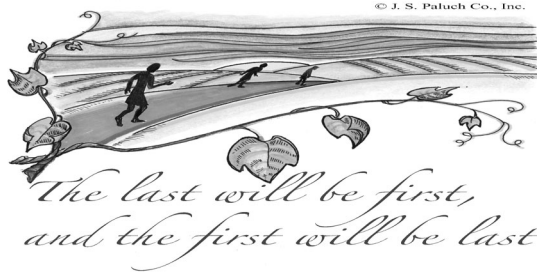 © J. S. Paluch Co., Inc.
The last will be first,
and the first will be last